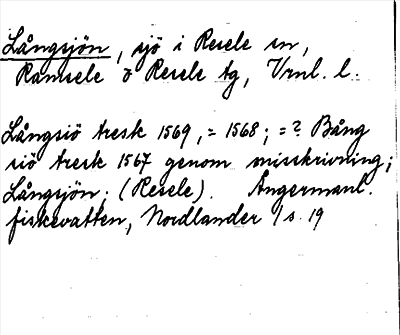 Långsjön, sjö i Resele sn,
Ramsele o Resele tg, Vrnl. l.
Långsiö tresk 1569, = 1568; =? Bång
siö tresk 1567 genom misskrivning;
Långsjön; (Resele). Ångermanl.
fiskevatten, Nordlander / s. 19